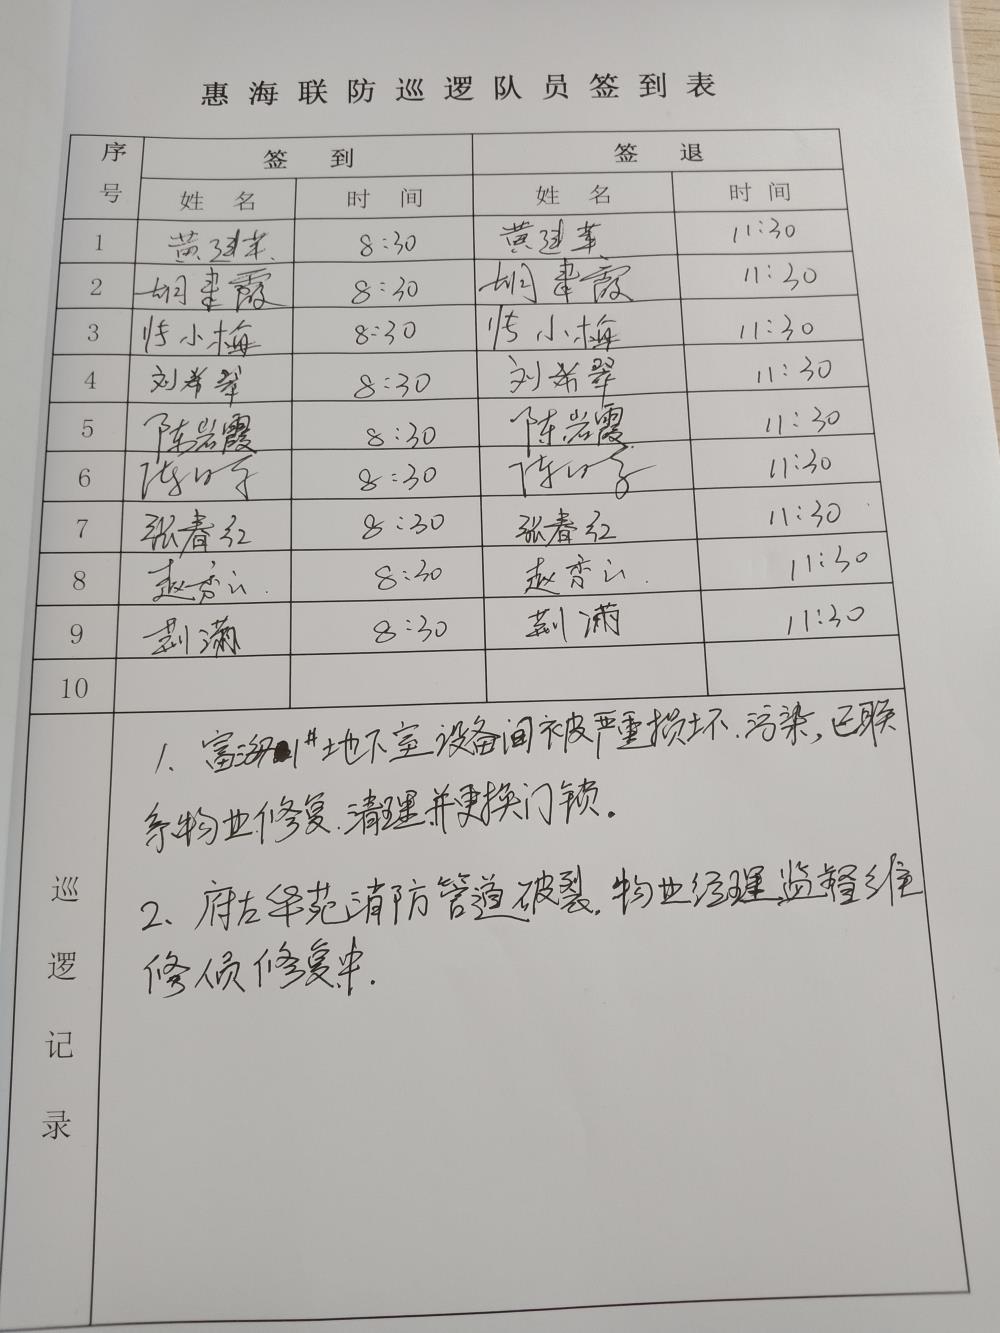 惠海联防巡逻队员签到表
序号 签到 签退
姓名 时间 姓名 时间
1 黄 8:30 黄 11:30
2 胡 霞 8:30 胡 霞 11:30
3 小梅 8:30 小梅 11:30
4 刘希翠 8:30 刘希翠 11:30
5 陈岩霞 8:30 陈岩霞 11:30
6 陈 8:30 陈 11:30
7 张春红 8:30 张春红 11:30
8 赵秀 8:30 赵秀 11:30
9 荆潇 8:30 荆潇 11:30
10
巡逻记录
1、富海1#地下室设备间被严重损坏、污染,已联
系物业修复、清理并更换门锁。
2、府左华苑消防管道破裂,物业经理监督维
修人员修复中.